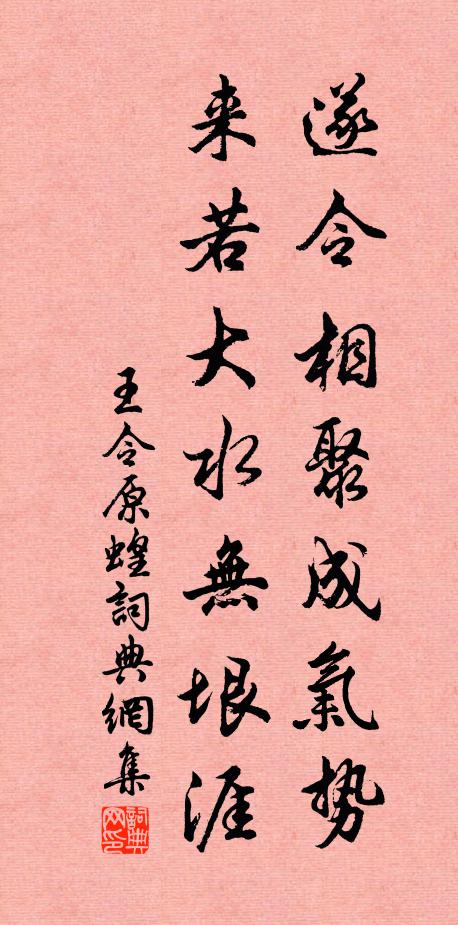 遂令相聚成氣势
来若大水無垠涯
王令原蝗詞典網集
詞典网印